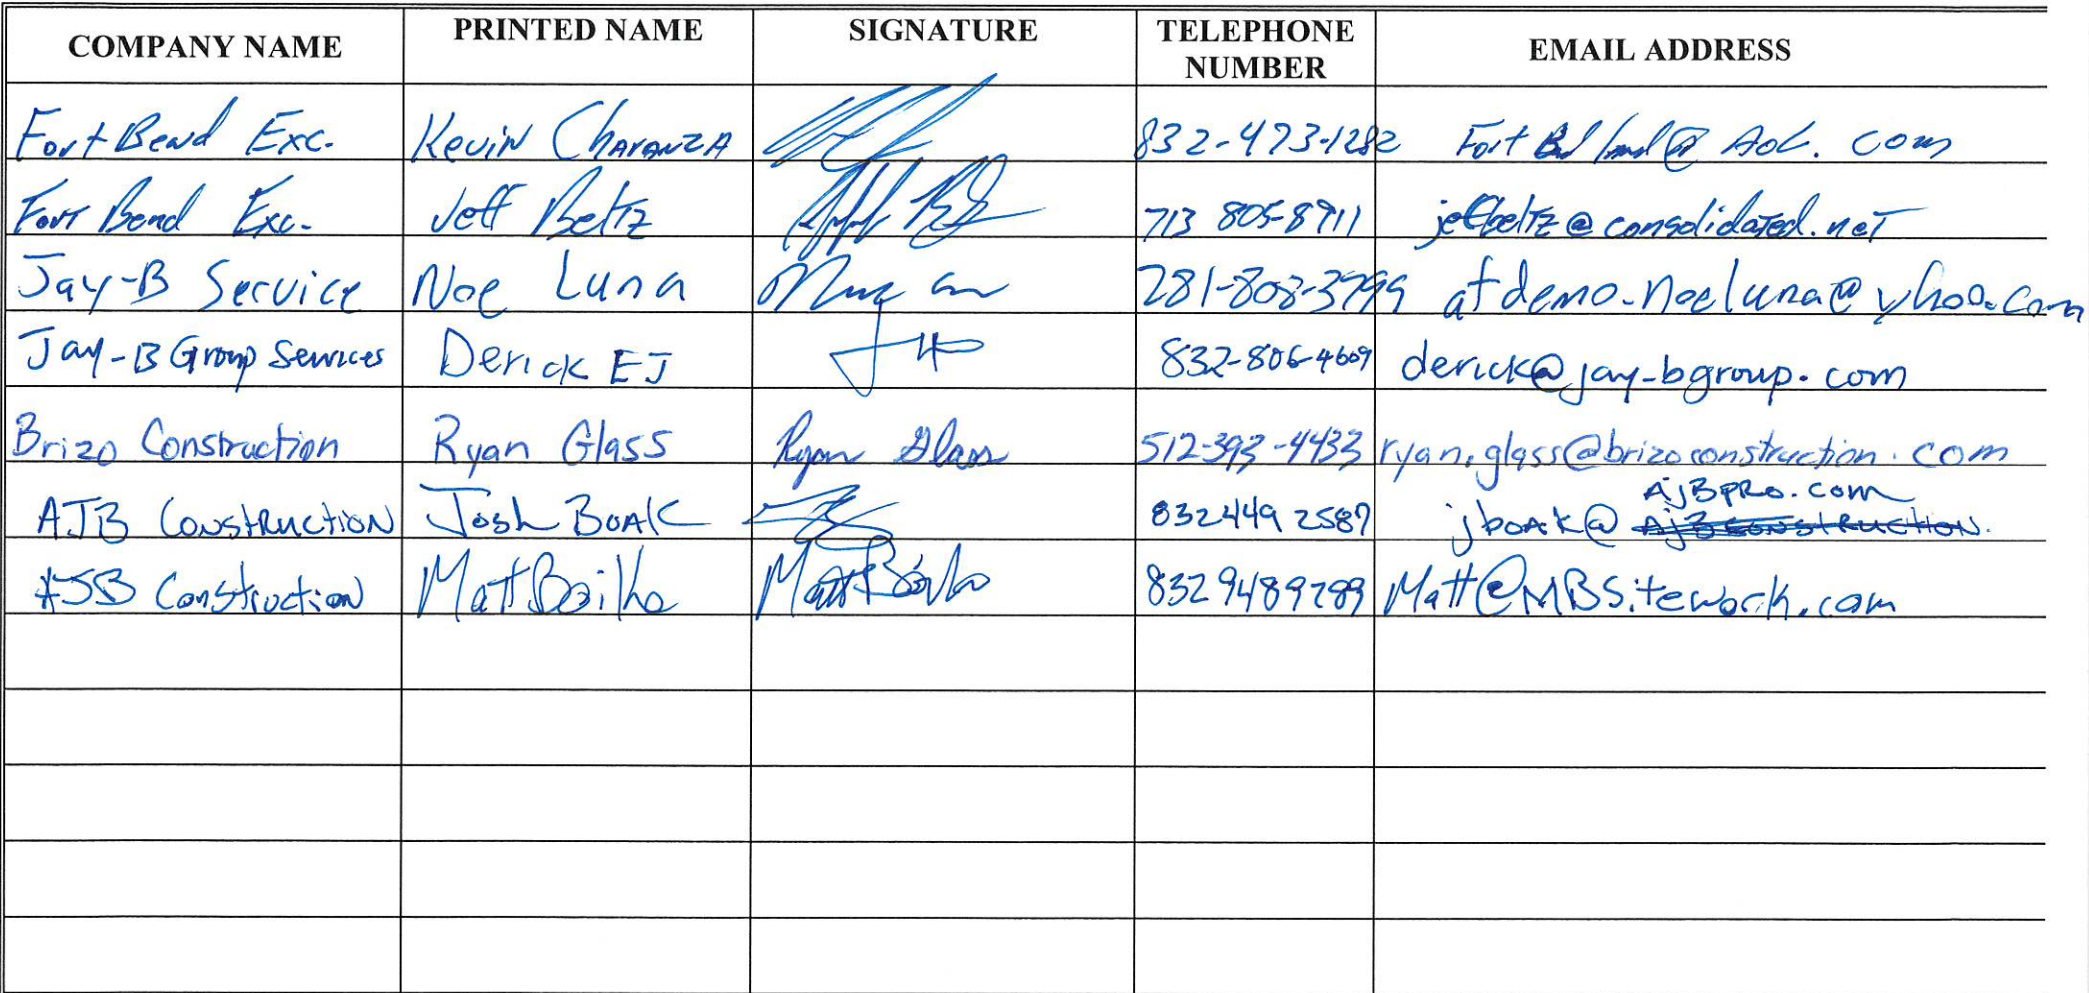 COMPANY NAME PRINTED NAME SIGNATURE TELEPHONE NUMBER EMAIL ADDRESS
Fort Bend Exc. Kevin Charanza 832-473-1282 Fort @ AOL. com
Fort Bend Exc. Jeff Beltz 713 805-8711 jeffbeltz@consolidated.net
Jay-B Service Noe Luna 281-808-3799 atdemo.noeluna@yhoo.com
Jay-B Group Services Derick EJ 832-806-4609 derick@jay-bgroup.com
Brizo Construction Ryan Glass Ryan Glass 512-393-4433 ryan.glass@brizoconstruction.com
AjBpro.com
AJB Construction Josh Boak 832 449 2587 jboak@ AjBconstruction.
AJB Construction Matt Boihe Matt 832 948 9789 Matt@MBSitework.com